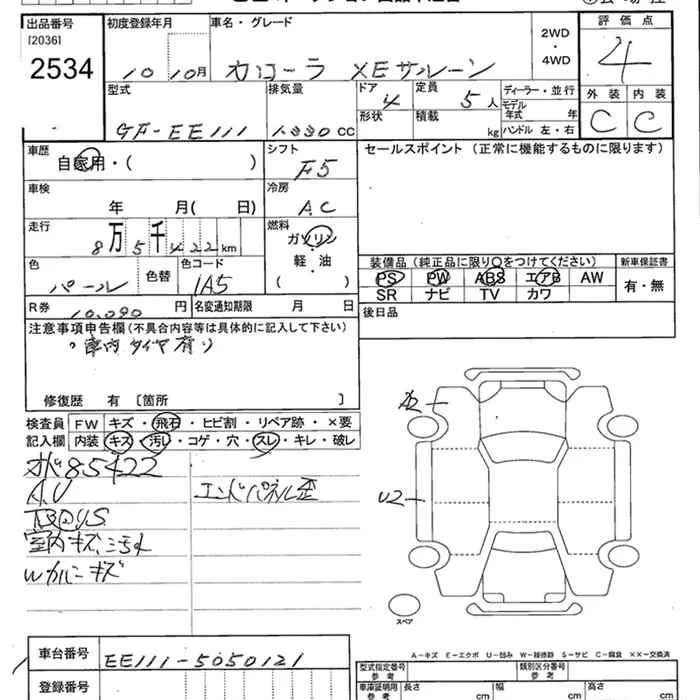 出品番号
[2036]
2534
初度登録年月
10 10月
車名・グレード
カローラ XEサルーン
2WD
・
4WD
評価点
4
外装 内装
C C
型式
GF-EE111
排気量
1.330 CC
ドア
4
形状
定員
5人
積載
kg
ディーラー・並行
モデル年式 年
ハンドル 左・右
車歴
自家用・( )
シフト
F5
セールスポイント (正常に機能するものに限ります)
車検
年 月( 日)
冷房
AC
走行
8万5千422km
燃料
ガソリン
・
軽・油
・
( )
色
パール
色替
色コード
1A5
装備品 (純正品に限り〇をつけてください)
PS PW ABS エアB AW
SR ナビ TV カワ
新車保証書
有・無
R券 10,090 円
名変通知期限 月 日
後日品
注意事項申告欄(不具合内容等は具体的に記入して下さい)
。車内タイヤ有り
修復歴 有 [箇所 ]
検査員
記入欄
FW キズ・飛石・ヒビ割・リペア跡・×要
内装 キズ・汚レ・コゲ・穴・スレ・キレ・破レ
85422
A.U
エンドパネル歪
室内キズ、汚れ
キズ
A2
U2
スペア
A-キズ E-エクボ U-凹み W-補修跡 S-サビ C-腐食 XX-交換済
車台番号
EE111-5050121
登録番号
型式指定番号
参考
類別区分番号
参考
車庫証明用
参考
長さ cm
幅 cm
高さ cm